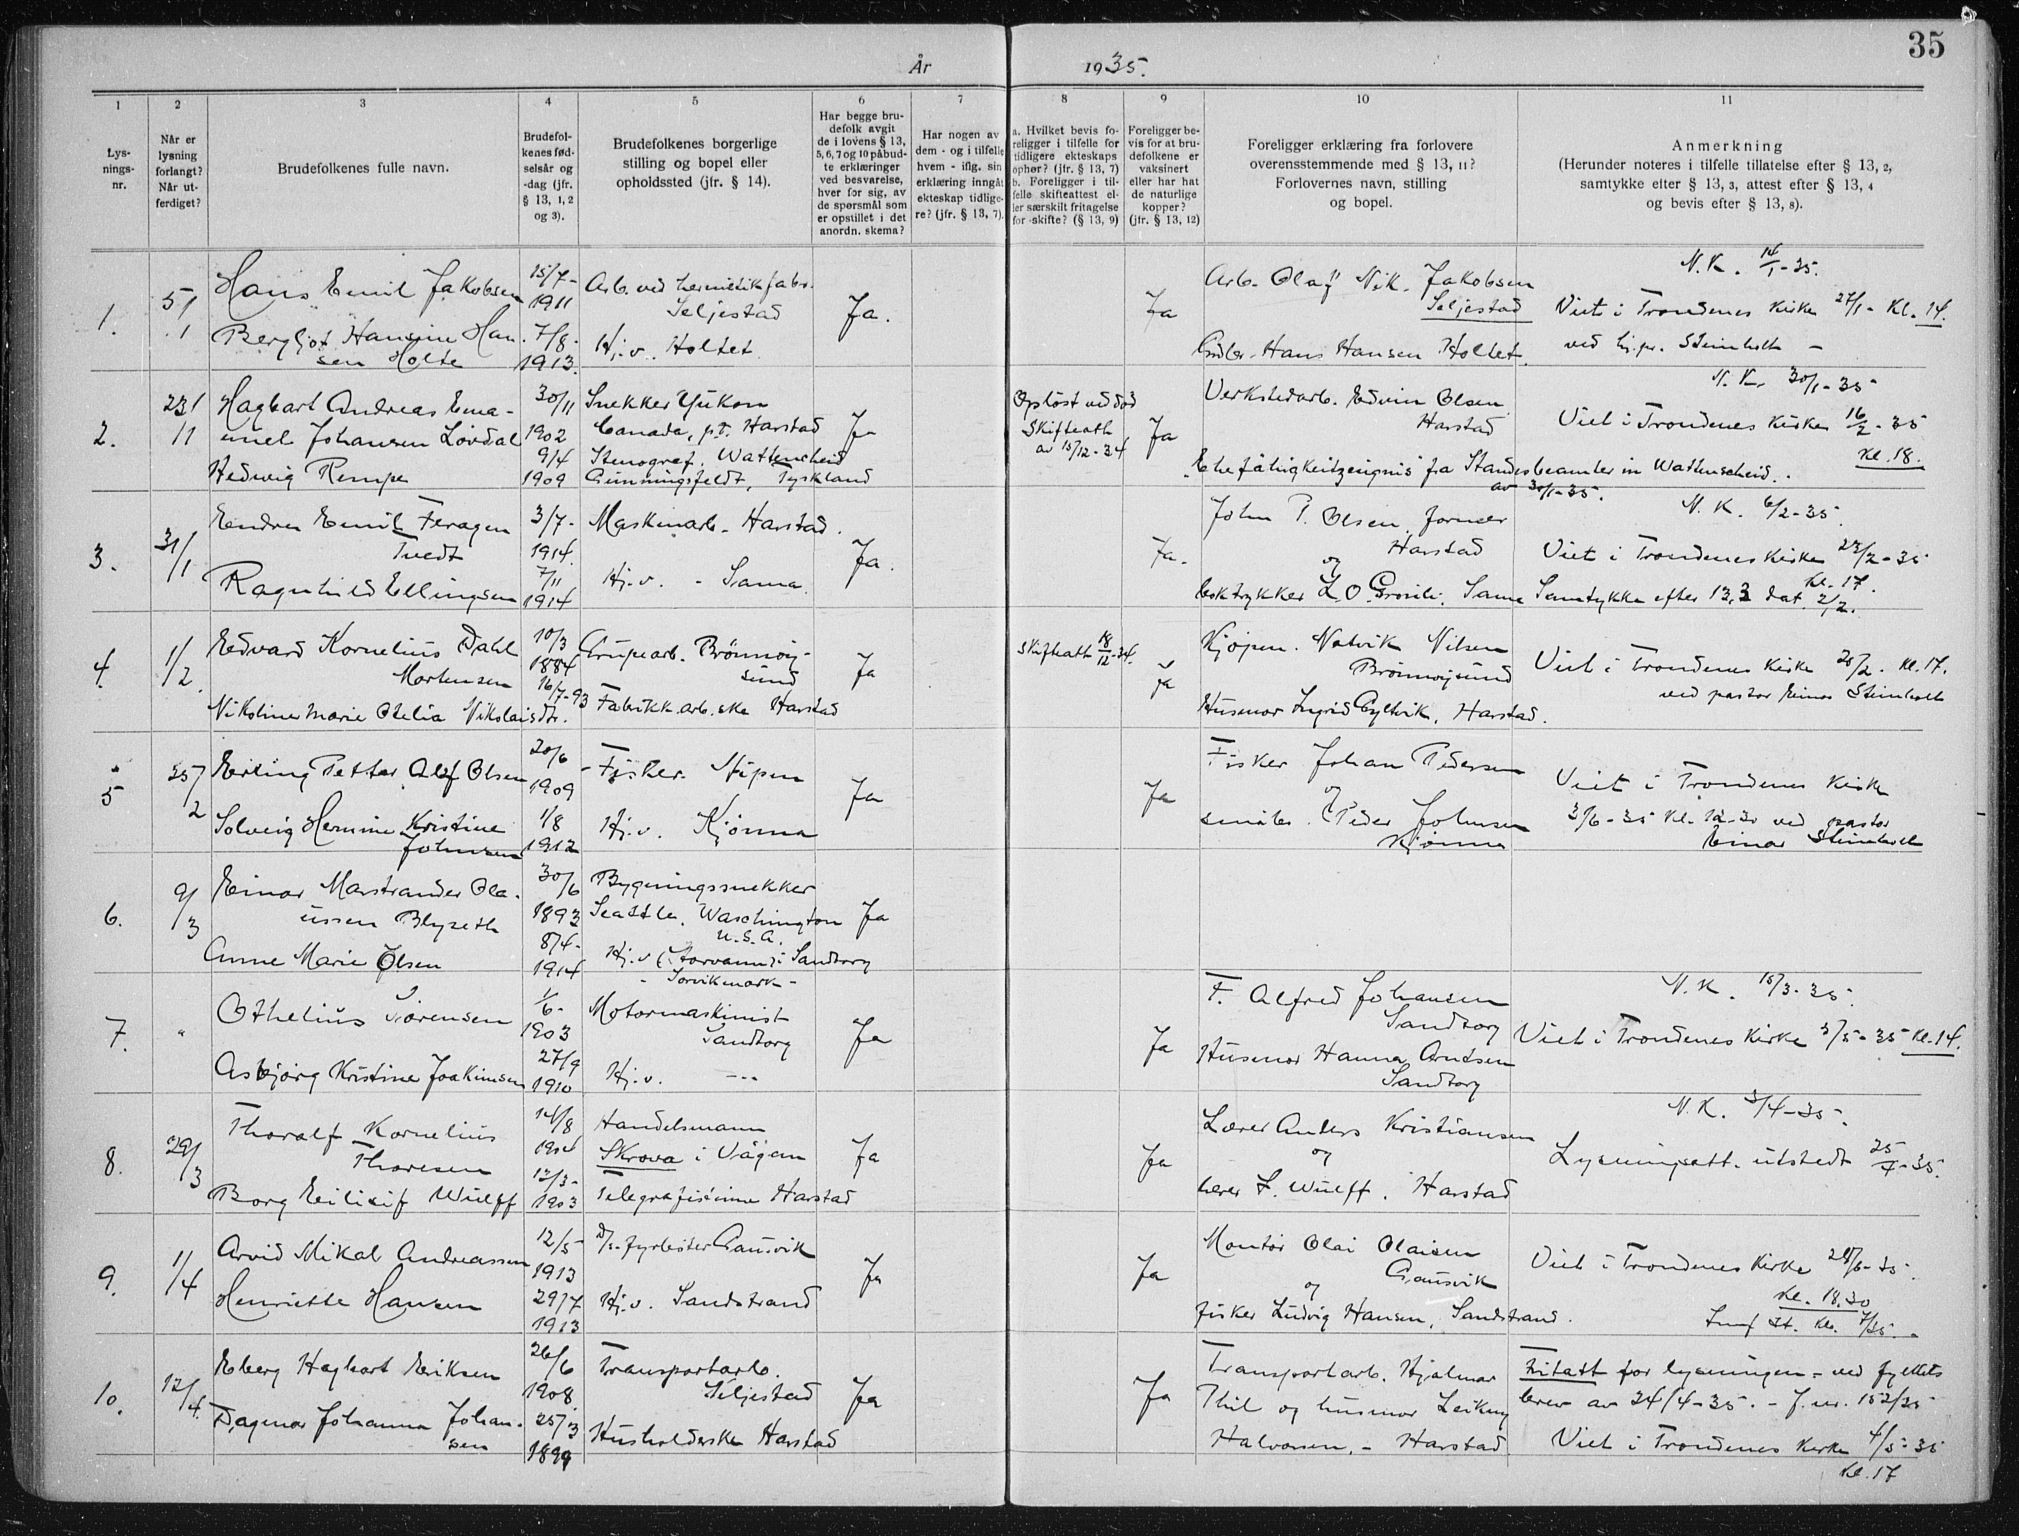 35
År 1935.
1 2 3 4 5 6 7 8 9 10 11
Lys-
nings-
nr.
Når er
lysning
forlangt?
Når ut-
ferdiget?
Brudefolkenes fulle navn.
Brudefol-
kenes fød-
selsår og
-dag (jfr.
§ 13, 1, 2
og 3).
Brudefolkenes borgerlige
stilling og bopel eller
opholdssted (jfr. § 14).
Har begge bru-
defolk avgit
de i lovens § 13,
5, 6, 7 og 10 påbud-
te erklæringer
ved besvarelse,
hver for sig, av
de spørsmål som
er opstillet i det
anordn. skema?
Har nogen av
dem - og i tilfelle
hvem - iflg. sin
erklæring inngåt
ekteskap tidlige-
re? (jfr. § 13, 7).
a. Hvilket bevis fo-
religger i tilfelle for
tidligere ekteskaps
ophør? (jfr. § 13, 7)
b. Foreligger i til-
felle skifteattest el-
ler særskilt fritagelse
for skifte? (§ 13, 9)
Foreligger be-
vis for at bru-
defolkene er
vaksinert
eller har hat
de naturlige
kopper?
(jfr. § 13, 12)
Foreligger erklæring fra forlovere
overensstemmende med § 13, 11?
Forlovernes navn, stilling
og bopel.
Anmerkning
(Herunder noteres i tilfelle tillatelse efter § 13, 2,
samtykke efter § 13, 3, attest efter § 13, 4
og bevis efter § 13, 8).
1. 5/1
Hans Emil Jakobsen
15/7-
1911
Arb. ved hermetikfabr.
Seljestad
Bergljot Hansine Han-
sen Holte
7/8-
1913.
Hj.v. Holtet
Ja.
Ja
Arb. Olaf Nik. Jakobsen
Seljestad
Grdbr. Hans Hansen Holtet.
N.K. 14/1-35.
Viet i Trondenes kirke 27/1- Kl. 14.
ved hj.pr. Steinholt -
2. 23/1
Hagbart Andreas Ema-
nuel Johansen Løvdal
30/11
1902
Snekker Yukon
Canada, p.t. Harstad
Hedwig Rempe
9/4
1909
Stenograf. Wattenscheid
Günningsfeldt, Tyskland
Ja
Opløst ved død
Skifteatt.
av 15/12-34
Ja
Verkstedarb. Edvin Olsen
Harstad
"Ehefähigkeitzeugnis" fra Standesbeamter in Wattenscheid.
av 30/1-35.
N.K. 30/1-35
Viet i Trondenes kirke 16/2-35
Kl. 18.
3. 31/1
Endre Emil Feragen
Tvedt
3/7-
1914.
Maskinarb. Harstad.
Ragnhild Ellingsen
7/11
1914
Hj.v. - Sama
Ja.
Ja.
John P. Olsen, former
Harstad
og
boktrykker L.O. Grønli. Sama
N.K. 6/2-35.
Viet i Trondenes kirke 23/2-35
Kl. 17.
Samtykke efter 13,3 dat. 2/2.
4. 1/2.
Edvard Kornelius Dahl
Mortensen
10/3
1884
Grupearb. Brønnøy-
sund
Nikoline Marie Otelia Nikolaisdtr.
16/7-93
Fabrikk.arb.ske Harstad
Ja
Skifteatt. 18/12-34.
Ja
Kjøpm. Natvik Nilsen
Brønnøysund
Husmor Ingrid Gyltvik, Harstad.
Viet i Trondenes kirke 20/2. Kl. 17.
ved pastor Einar Steinholt
5 25/2
Erling Petter Olaf Olsen
20/6
1909
- Fisker. Stipen
Solveig Hermine Kristine
Johnsen
1/8
1912
Hj.v. Kjønna
Ja
Ja
Fisker Johan Pedersen
og
småbr. Peder Johnsen
Kjønna
Viet i Trondenes kirke
3/6-35 Kl. 12-30 ved pastor
Einar Steinholt
6. 9/3
Einar Marstrander Ola-
ussen Blyseth
30/6
1893
Bygningssnekker
Seattle, Waschington
U.S.A.
Anne Marie Olsen
8/4-
1914
Hj.v. (Storvann) i Sandtorg
- Sørvikmark -
Ja
7. "
Othelius Sørensen
1/6-
1903
Motormaskinist
Sandtorg
Asbjørg Kristine Joakimsen
27/9
1910
Hj.v. ---
Ja
Ja
F. Alfred Johansen
Sandtorg
Husmor Hanna Arntsen
Sandtorg
N.K. 15/3-35.
Viet i Trondenes kirke 3/5-35 Kl. 14.
8. 29/3
Thoralf Kornelius
Thoresen
14/8
1904
Handelsmann
Skrova i Vågan
Borg Eiliсif Wulff
12/3-
1903
Telegrafistinne Harstad
Ja
Ja
Lærer Anders Kristiansen
og
lærer F. Wulff, Harstad
N.K. 3/4-35.
Lysningsatt. utstedt 25/4-35.
9. 1/4
Arvid Mikal Andreassen
12/5
1913
D/s. fyrbøter Gausvik
Henriette Hansen
29/7
1913
Hj.v. Sandstrand
Ja
Ja
Montør Olai Olaisen
Gausvik
og
fisker Ludvig Hansen, Sandstrand.
Viet i Trondenes kirke 28/6-35.
Kl. 18.30
10. 12/4.
Eberg Hagbart Eriksen
26/6
1908.
Transportarb.
Seljestad
Dagmar Johanna Johan-
sen
25/3
1899
Husholderske Harstad
Ja
Ja
Transportarb. Hjalmar
Thil og husmor Leikny
Halvorsen, - Harstad
Fritatt for lysningen - ved fylkets
brev av 24/4-35. - J.nr. 152/35
Viet i Trondenes kirke 4/5-35
Kl. 17